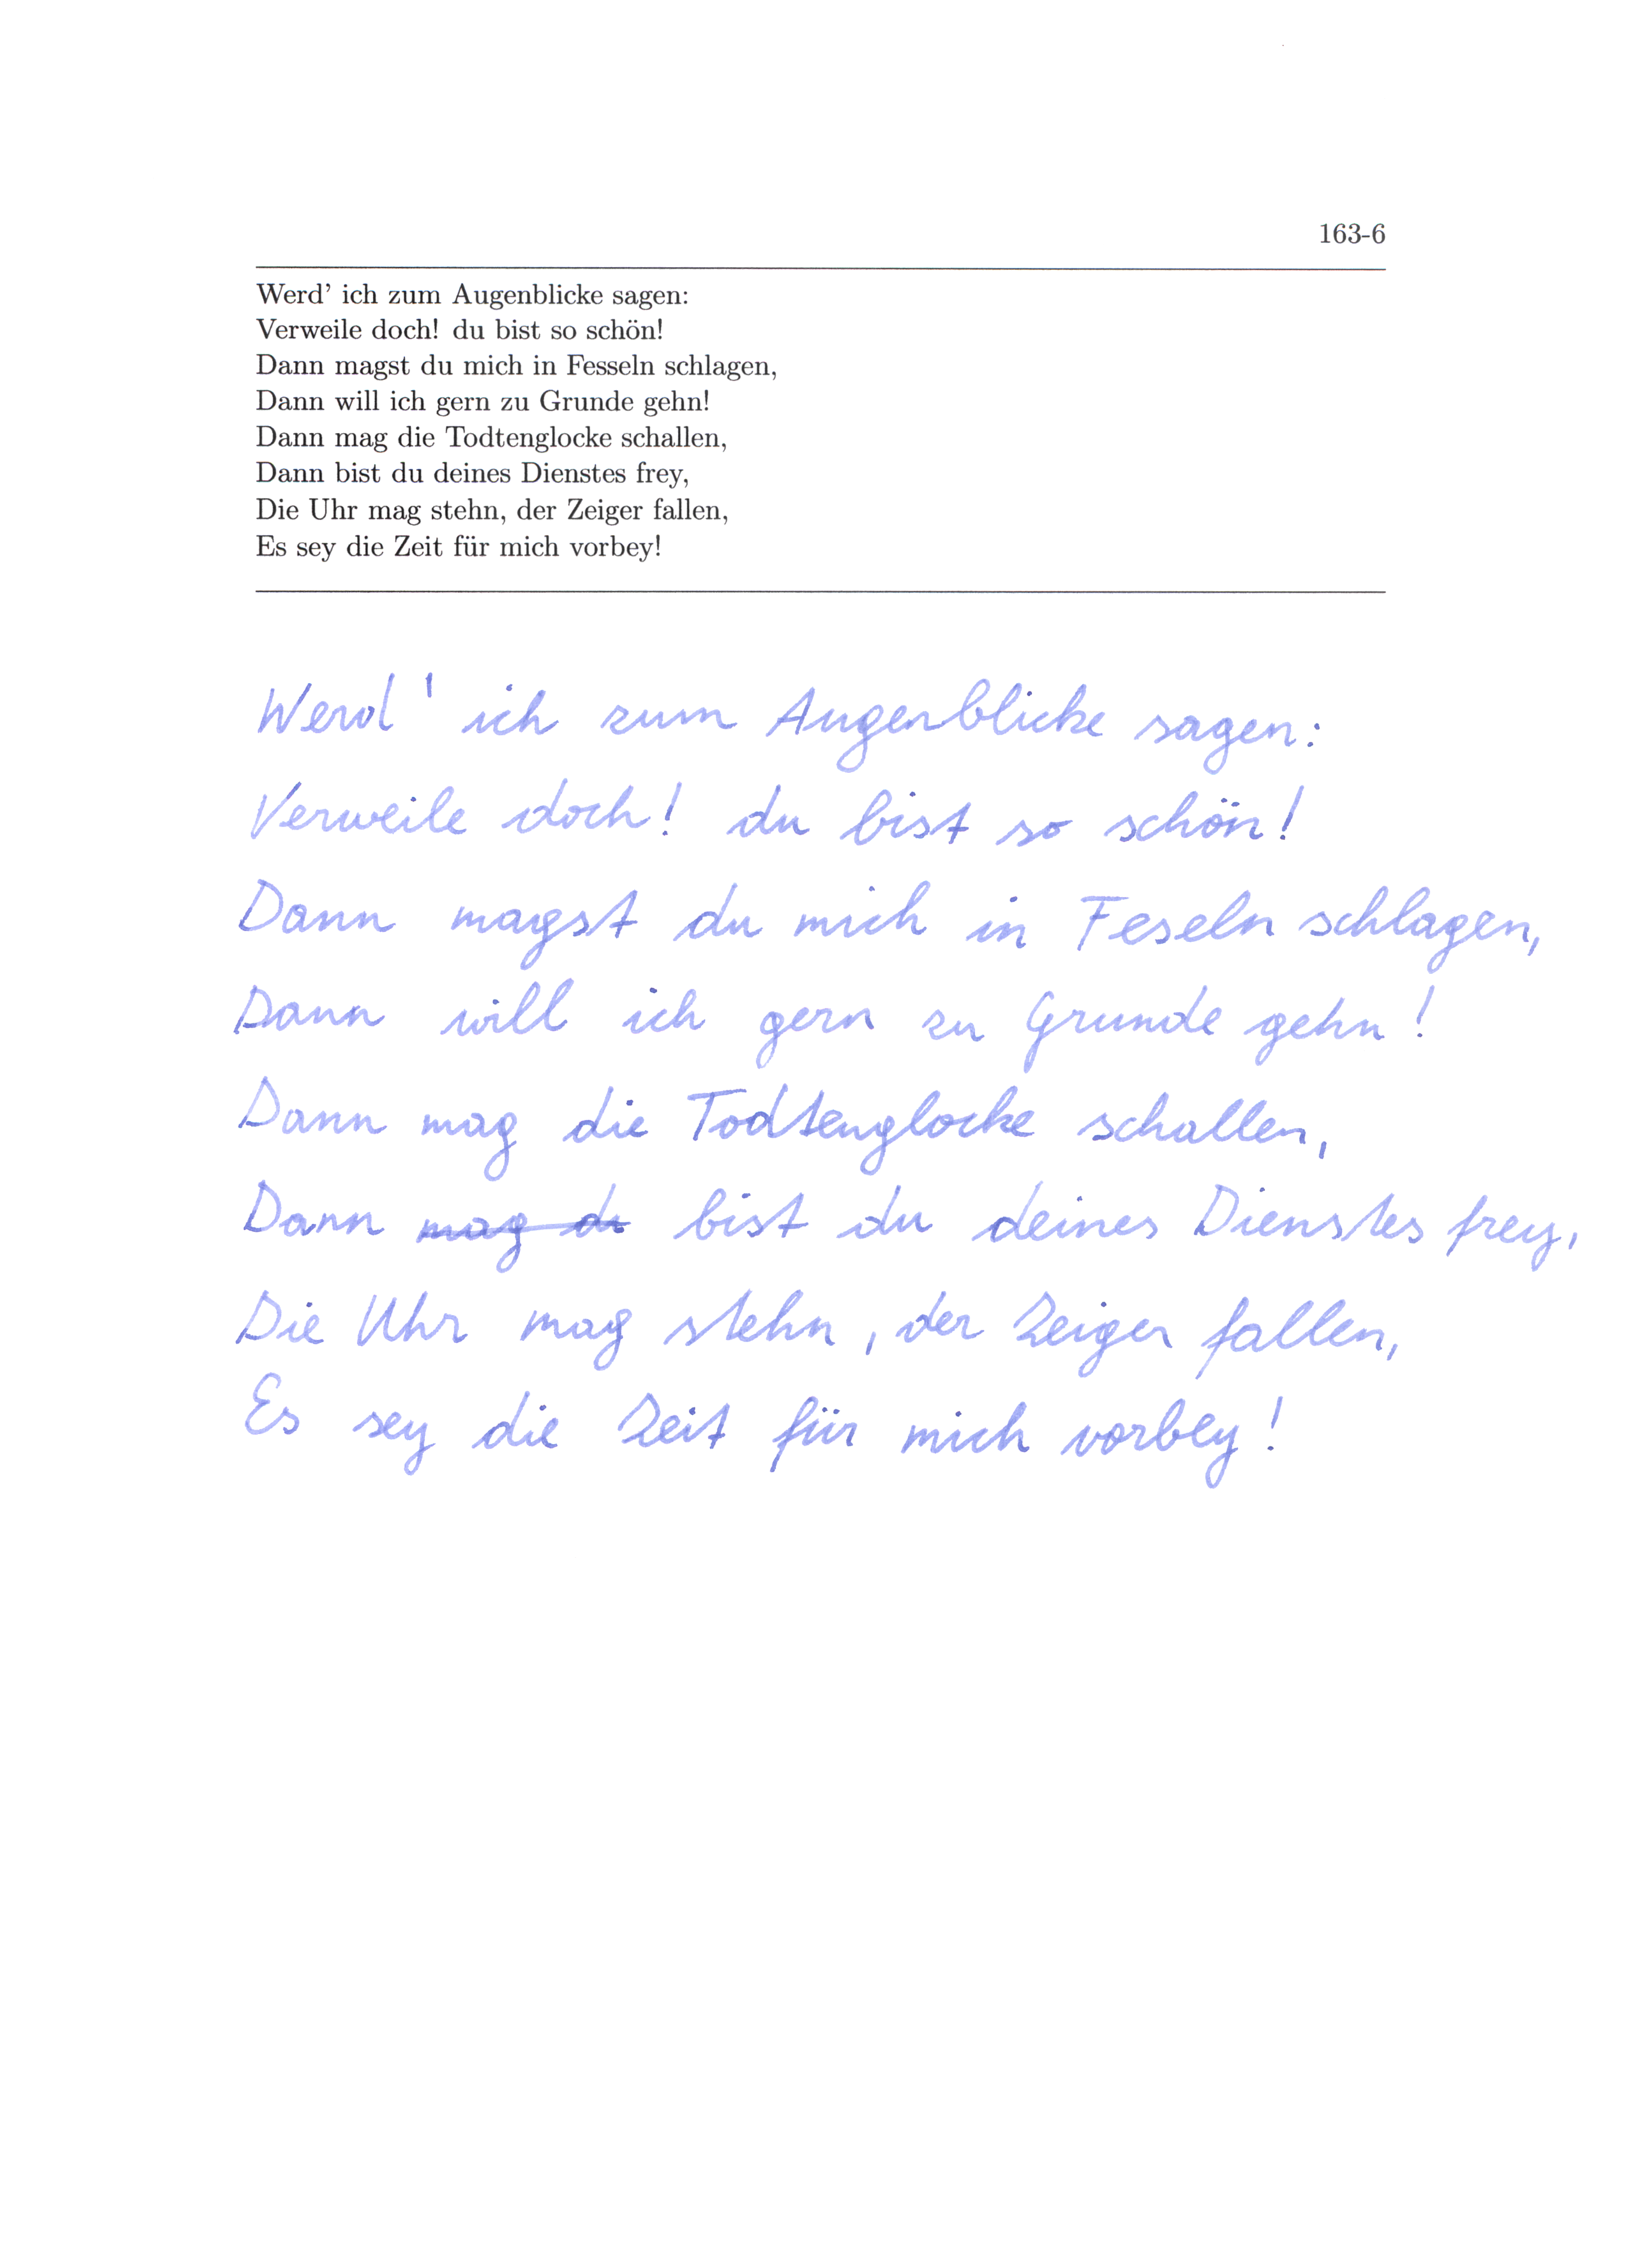 163-6
Werd' ich zum Augenblicke sagen:
Verweile doch! du bist so schön!
Dann magst du mich in Fesseln schlagen,
Dann will ich gern zu Grunde gehn!
Dann mag die Todtenglocke schallen,
Dann bist du deines Dienstes frey,
Die Uhr mag stehn, der Zeiger fallen,
Es sey die Zeit für mich vorbey!
Werd' ich zum Augenblicke sagen:
Verweile doch! du bist so schön!
Dann magst du mich in Feseln schlagen,
Dann will ich gern zu Grunde gehn!
Dann mag die Todtenglocke schallen,
Dann mag du bist du deines Dienstes frey,
Die Uhr mag stehn, der Zeiger fallen,
Es sey die Zeit für mich vorbey!